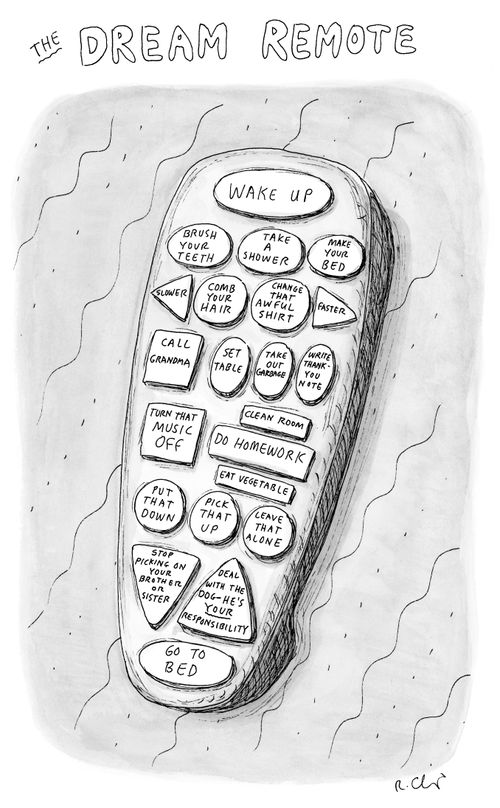 THE DREAM REMOTE
WAKE UP
BRUSH
YOUR
TEETH
TAKE
A
SHOWER
MAKE
YOUR
BED
SLOWER
COMB
YOUR
HAIR
CHANGE
THAT
AWFUL
SHIRT
FASTER
CALL
GRANDMA
SET
TABLE
TAKE
OUT
GARBAGE
WRITE
THANK-
YOU
NOTE
TURN THAT
MUSIC
OFF
CLEAN ROOM
DO HOMEWORK
EAT VEGETABLE
PUT
THAT
DOWN
PICK
THAT
UP
LEAVE
THAT
ALONE
STOP
PICKING ON
YOUR
BROTHER
OR
SISTER
DEAL
WITH THE
DOG-HE'S
YOUR
RESPONSIBILITY
GO TO
BED